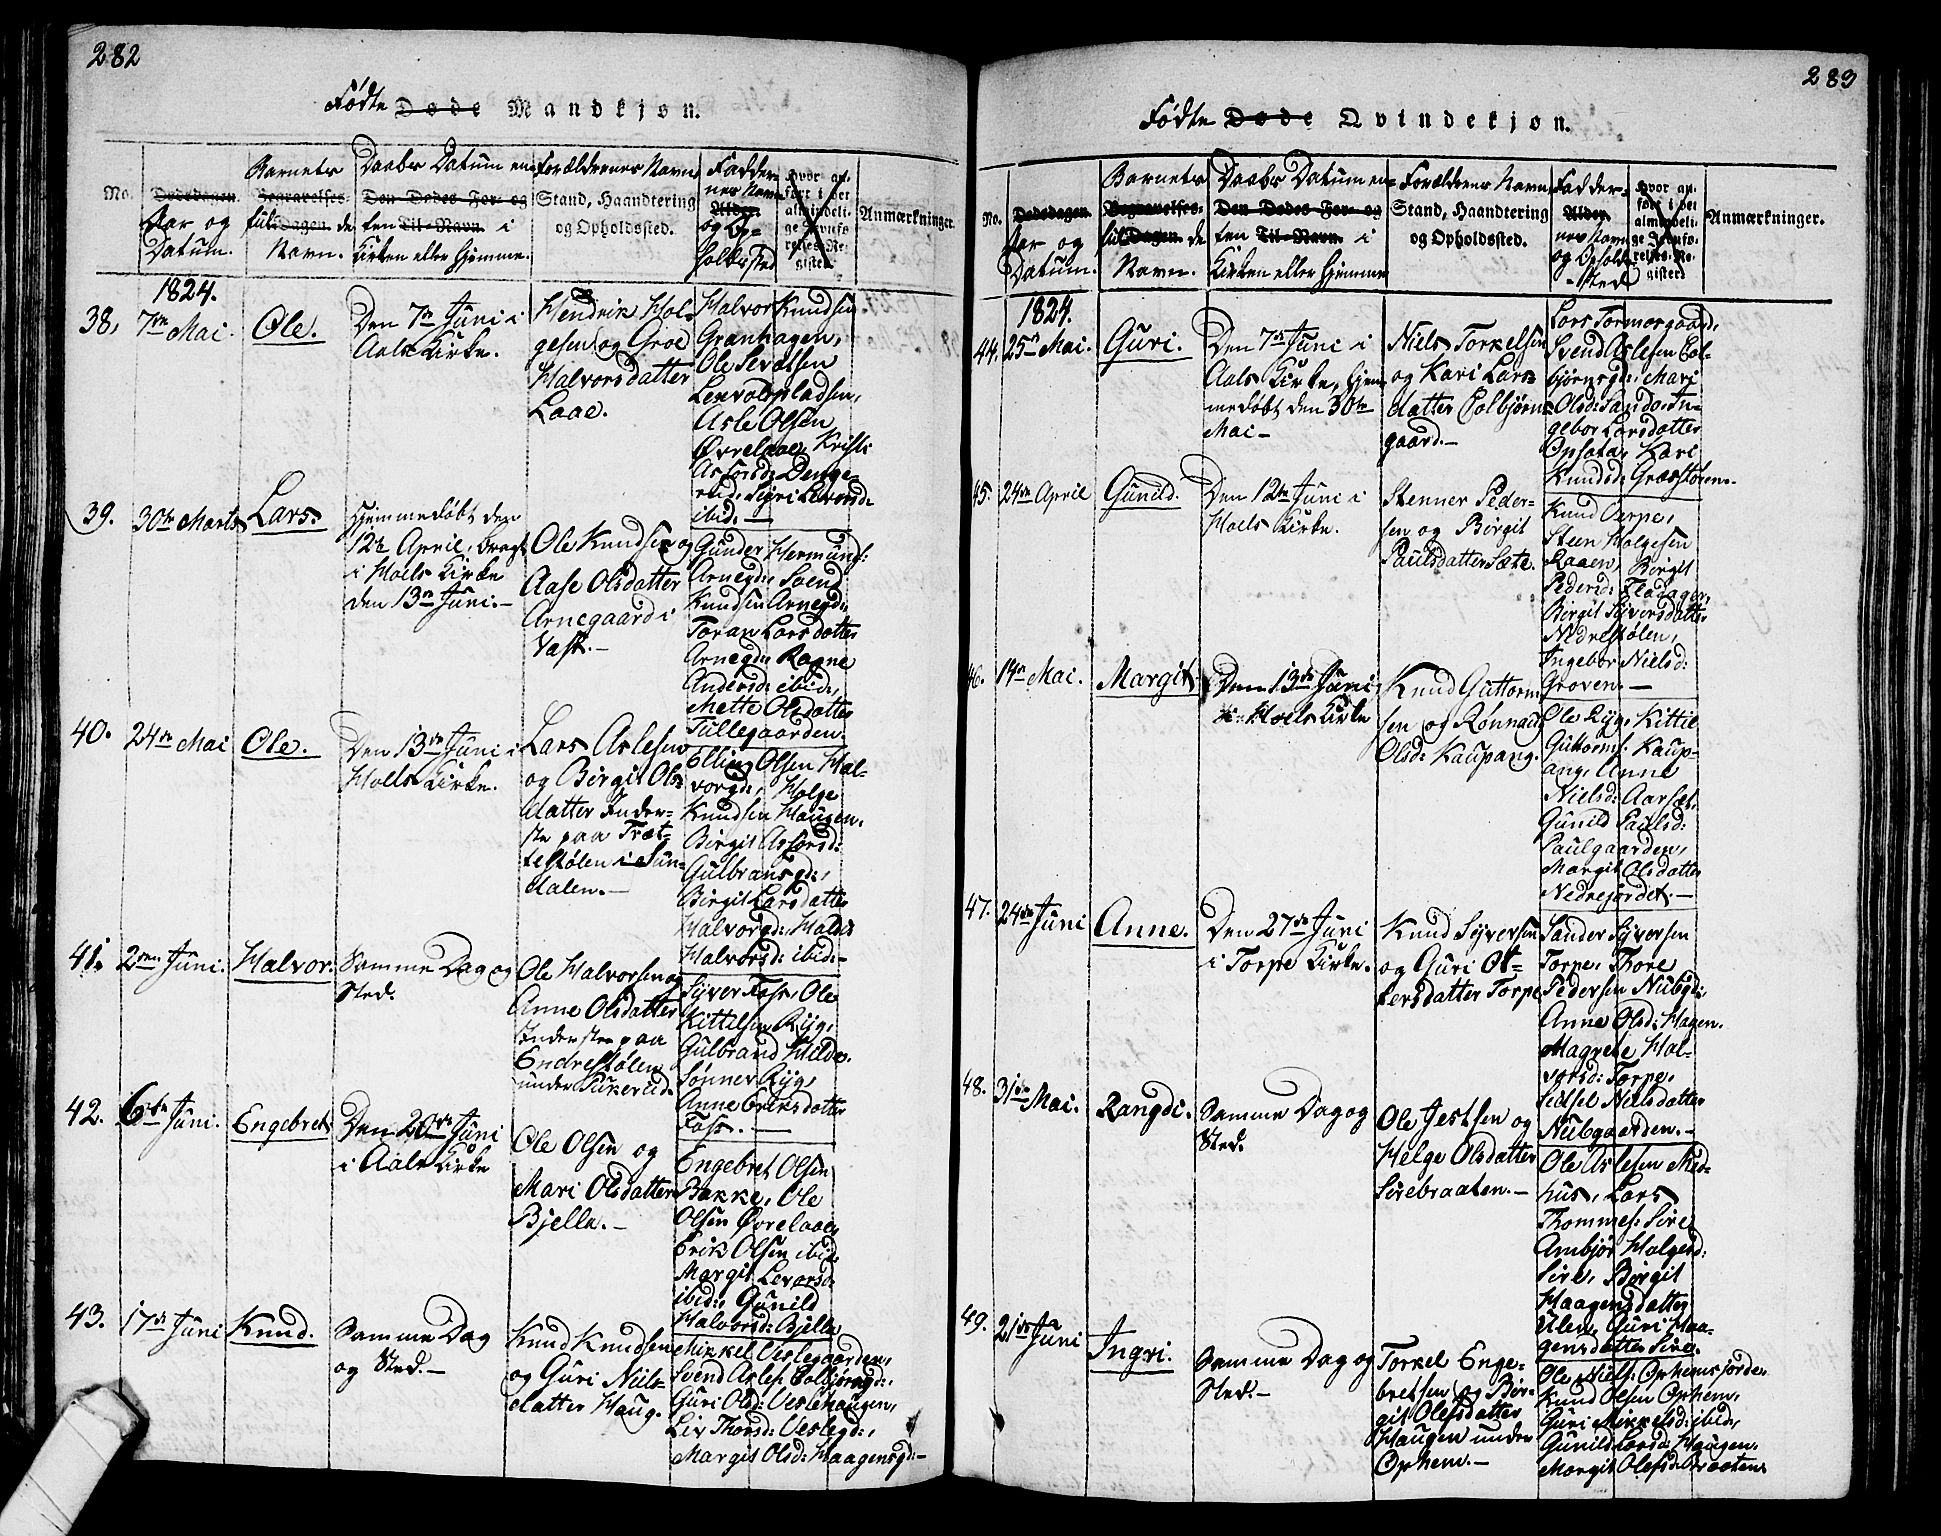 282
Fødte Døde Mandkjøn.
No.
Dødsdagen.
Aar og
Datum.
Barnets
Begravelses-
fulde Dagen.
Navn.
Daabs Datum en-
Den Dødes For- og
ten Til-Navn. i
Kirken eller Hjemme.
Forældrenes Navn
Stand, Haandtering
og Opholdssted.
Fadder-
nes Navn
Alder.
og Op-
holdssted
Hvor an-
ført i det
almindeli-
ge Jevnfø-
relses-Re-
gister.
Anmærkninger.
1824.
38,
7de Mai.
Ole.
Den 7de Juni i
Aals Kirke.
Hendrik Hol-
gesen og Groe
Halvorsdatter
Laae.
Halvor Knudsen
Grønhagen,
Ole Sevatsen
Levoldspladsen,
Asle Olsen
Øvrelaae, Kristi
Asforsd: Denge-
rud, Sigri Levorsd:
ibid. —
39.
30te Marts
Lars.
Hjemmedøbt den
12te April, bragt
i Hoels Kirke
den 13de Juni. —
Ole Knudsen og
Aase Olsdatter
Arnegaard i
Vast. —
Gunder Hermunds:
Arnegd: Svend
Knudsen Arnegd:
Toran Larsdatter
Arnegd: Ragne
Andersd: ibid:,
Mette Olsdatter
Tullegaarden.
40.
24de Mai
Ole.
Den 13de Juni i
Hoels Kirke.
Lars Aslesen
og Birgit Ols-
datter Inder-
ste paa Træt-
testølen i Sun-
dalen. —
Elling Olsen Hal-
vorgd:, Holge
Knudsen Haugen.
Birgit Asforsd:
Gulbransgd:,
Birgit Larsdatter
Halvorgd: Haldis
Halvorsd: ibid: —
41.
2den Juni.
Halvor.
Samme Dag og
Sted.
Ole Halvorsen og
Anne Olsdatter
Inderster paa
Endrestølen
under Sukerud.
Syver Foss, Ole
Kittilsen Ryg,
Gulbrand Hilde.
Sønner Ryg,
Anne Eriksdatter
Foss. —
42.
6te Juni.
Engebret
Den 20de Juni
i Aals Kirke
Ole Olsen og
Mari Olsdatter
Bjella. —
Engebret Olsen
Bakke, Ole
Olsen Øvrelaae,
Erik Olsen ibid,
Margit Levorsd:
ibid:, Gunild
Halvorsd: Bjella
43.
17de Juni
Knud.
Samme Dag
og Sted. —
Knud Knudsen
og Guri Niels-
datter Haug.
Mikkel Veslegaarden,
Svend Asles: Colbjørngd:,
Guri Olsd: Veslehaugen,
Liv Thorsd: Veslegd:,
Margit Olsd: Haagensgd: —
283
Fødte Døde Qvindekjøn.
No.
Dødsdagen.
Aar og
Datum.
Barnets
Begravelses-
fulde Dagen.
Navn.
Daabs Datum en-
Den Dødes For- og
ten Til-Navn. i
Kirken eller Hjemme
Forældrenes Navn
Stand, Haandtering
og Opholdssted.
Fadder-
Alder.
nes Navn
og Opholds
-sted
Hvor an-
ført i det
almindeli-
ge Jevnfø-
relses-Re-
gister.
Anmærkninger.
1824.
44.
25de Mai.
Guri.
Den 7de Juni i
Aals Kirke, hjem-
medøbt den 30te
Mai —
Niels Torkelsen
og Kari Lars-
datter Colbjørns-
gaard. —
Lars Tormorgaard,
Svend Aslesen Col-
bjørnsgd:, Mari
Olsd: Sando, In-
gebor Larsdatter
Opsata, Kari
Knudsd: Græsstøren. —
45.
24de April
Gunild.
Den 12te Juni i
Hoels Kirke.
Stenner Peder-
sen og Birgit
Paulsdatter Sæte.
Knud Oerpe,
Steen Holgesen
Raaen, Birgit
Pedersd: Fladager,
Birgit Syversdatter
Nedrestølen,
Ingebor Nielsd:
Groven. —
46.
14de Mai.
Margit
Den 13de Juni
i Hoels Kirke
Knud Guttorm-
sen og Rønnaug
Olsd: Kaupang.
Ole Ryg, Kittil
Guttorms: Kaup-
ang, Anne
Nielsd: Aarset.
Gunild Paulsd:
Paulgaarden,
Margit Olsdatter
Nedrejordet. —
47.
24de Juni
Anne.
Den 27de Juni
i Torpe Kirke.
Knud Syversen
og Guri Ot-
tersdatter Torpe
Sander Syversen
Torpe, Thore
Pedersen Nubgd:
Anne Olsd: Hagen.
Magrete Hal-
vorsd: Torpe,
Sidsel Nielsdatter
Nubgaarden. —
48.
31de Mai.
Rangdi.
Samme Dag og
Sted.
Ole Jestsen og
Helge Olsdatter
Sirebraaten. —
Ole Aslesen Mid-
hus, Lars
Thommes: Sire
Ambjør Holgersd:
Sire, Birgit
Haagensdatter
Ulen, Guri Haa-
gensdatter Sire.
49.
21de Juni
Ingri.
Samme Dag og
Sted. —
Torkel Enge-
bretsen og Bir-
git Olefsdatter
Haugen under
Ophem. —
Ole Niels: Ophemsjorde.
Knud Olsen Ophem,
Guri Mikkelsd: ibid,
Gunild Larsd: Haugen.
Margit Olefsd: Braaten.